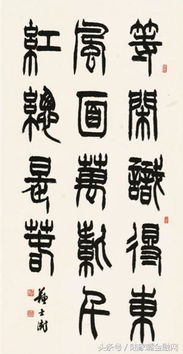 等閑識得東
風面萬紫千
紅總是春
蘇士澍
头条号